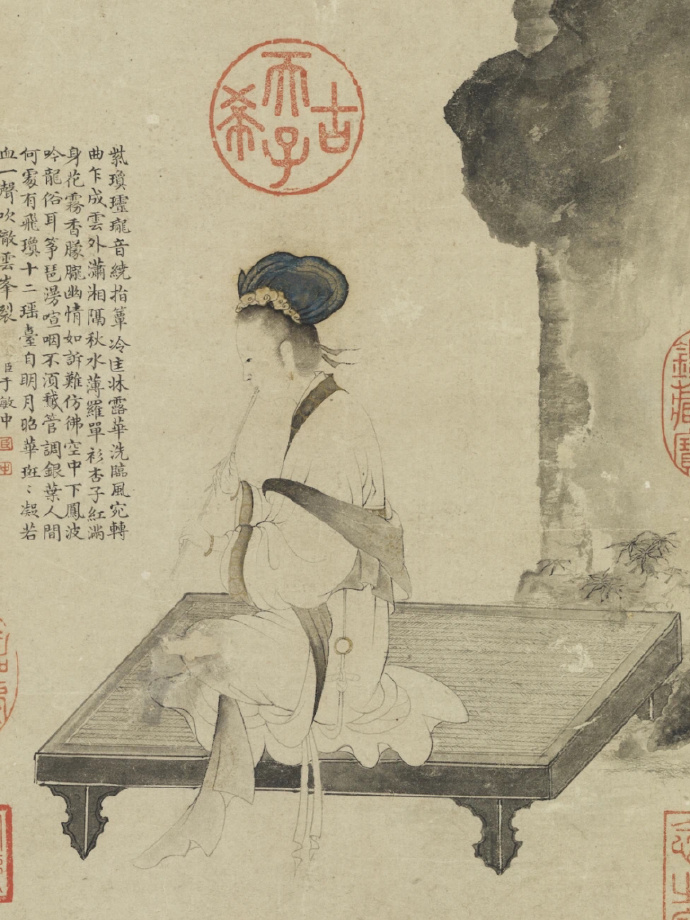 古希天子
紫瓊瓏音繞指簟冷匡牀露華洗臨風宛轉
曲乍成雲外瀟湘隔秋水薄羅單衫杏子紅滿
身花霧香朦朧幽情如訴難仿彿空中下鳳波
吟龍俗耳箏琶漫喧咽不須管調銀葉人間
何處有飛瓊十二瑤臺自明月昭華斑〻凝若
血一聲吹徹雲峯裂 臣于敏中
鑑藏寶